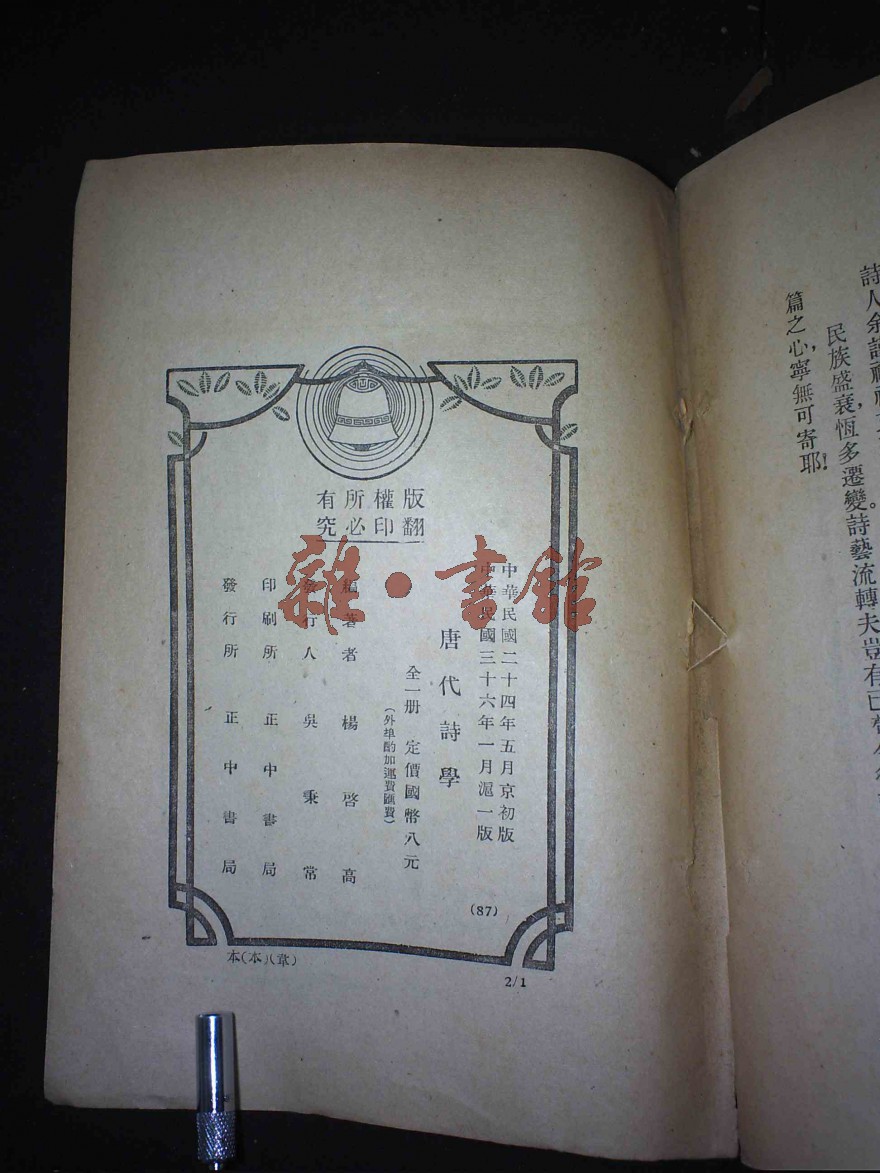 詩人余謂
民族盛衰,恆多遷變。詩藝流轉夫豈有已
篇之心,寧無可寄耶!
版權所有
翻印必究
中華民國二十四年五月京初版
中華民國三十六年一月滬一版
唐代詩學
全一册 定價國幣八元
(外埠酌加運費匯費)
編著者 楊啓高
發行人 吳秉常
印刷所 正中書局
發行所 正中書局
(87)
本(本)(章)
2/1
雜·書館